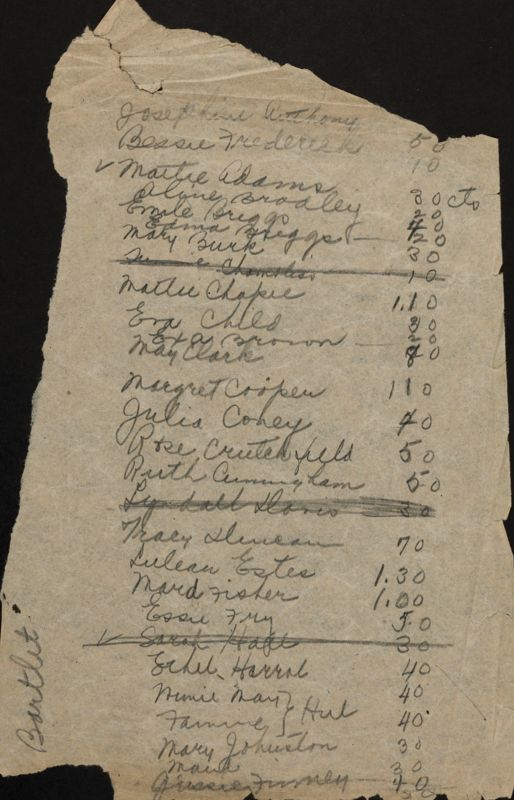 Josephine Anthony
Bessie Frederick 50
10
✓ Mattie Adams
Aline Bradley 30 cts
Emile Briggs 20
Edna Briggs — 40
Mary Burk 20
30
Chambliss 10
Mattie Chapie 1.10
Eva Child 30
Exa Brown — 20
May Clark 40
Margret Cooper 110
Julia Coney 40
Rose Crutchfield 50
Ruth Cunningham 50
Lyndall Davis 30
Tracy Duncan 70
Lulean Estes 1.30
Mard Fisher 1.00
Essie Fry 50
✓ Sarah Hall 30
Ethel Harrol 40
Minie May } Hul 40
Fannie 40
Mary Johnston 30
Maud 30
Gussie Finney
Bartlet